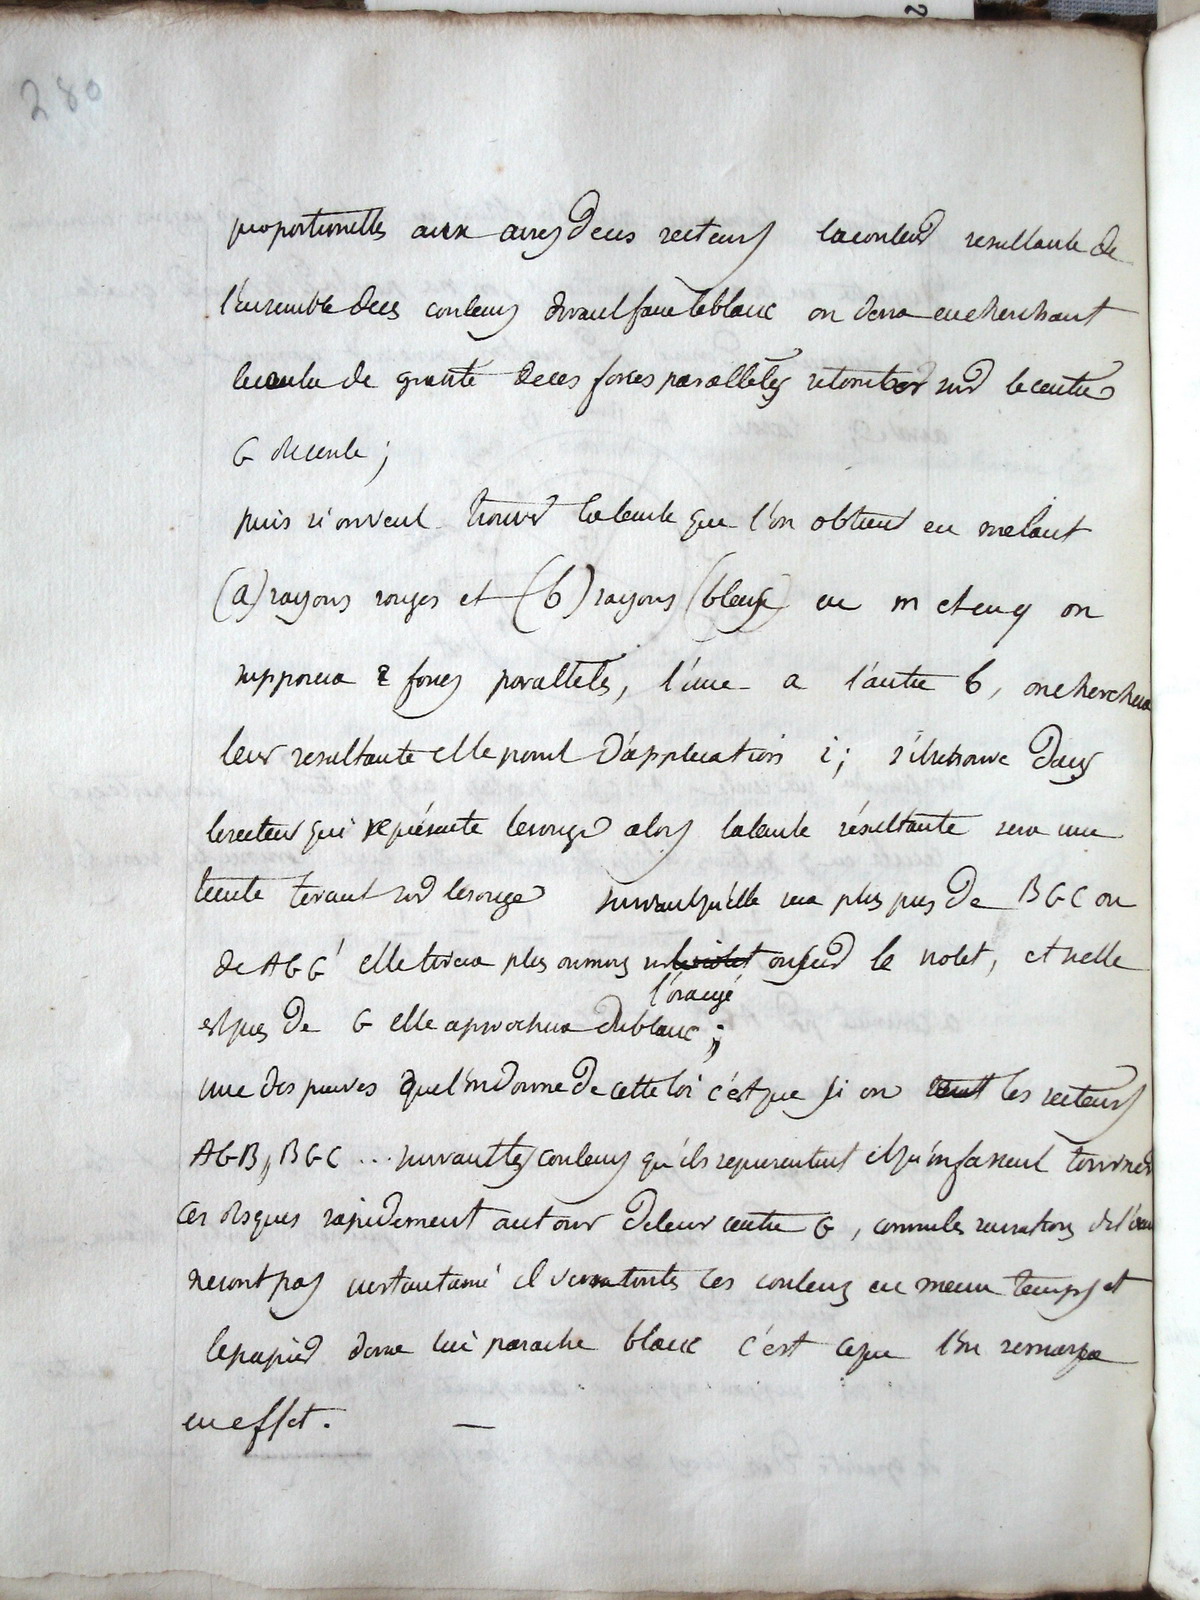 280
proportionelles aux aires de ces secteurs la couleur resultante de
l'ensemble de ces couleurs devant faire le blanc on devra en cherchant
le centre de gravité de ces forces paralleles retomber sur le centre
G du cercle;
puis si on veut trouver la teinte que l'on obtient en melant
(a) rayons rouges et (b) rayons (bleus) en m et en q on
supposera 2 forces paralleles, l'une a l'autre b, on cherchera
leur resultante et le point d'application i; s'il se trouve dans
le secteur qui représente le rouge alors la teinte résultante sera une
teinte tirant sur le rouge suivant qu'elle sera plus pres de BGC ou
de AGG' elle tirera plus ou moins sur le violet ou sur le violet, et si elle
l'orangé
est pres de G elle aprochera du blanc;
une des preuves que l'on donne de cette loi c'est que si on les secteurs
AGB, BGC ... suivant les couleurs qu'ils representent et qu'on fassent tourner
ces disques rapidement autour de leur centre G, comme les sensations de l'œil
ne sont pas instantané il verra toutes les couleurs en meme temps et
le papier devra lui paraitre blanc c'est ce que l'on remarque
en effet. —